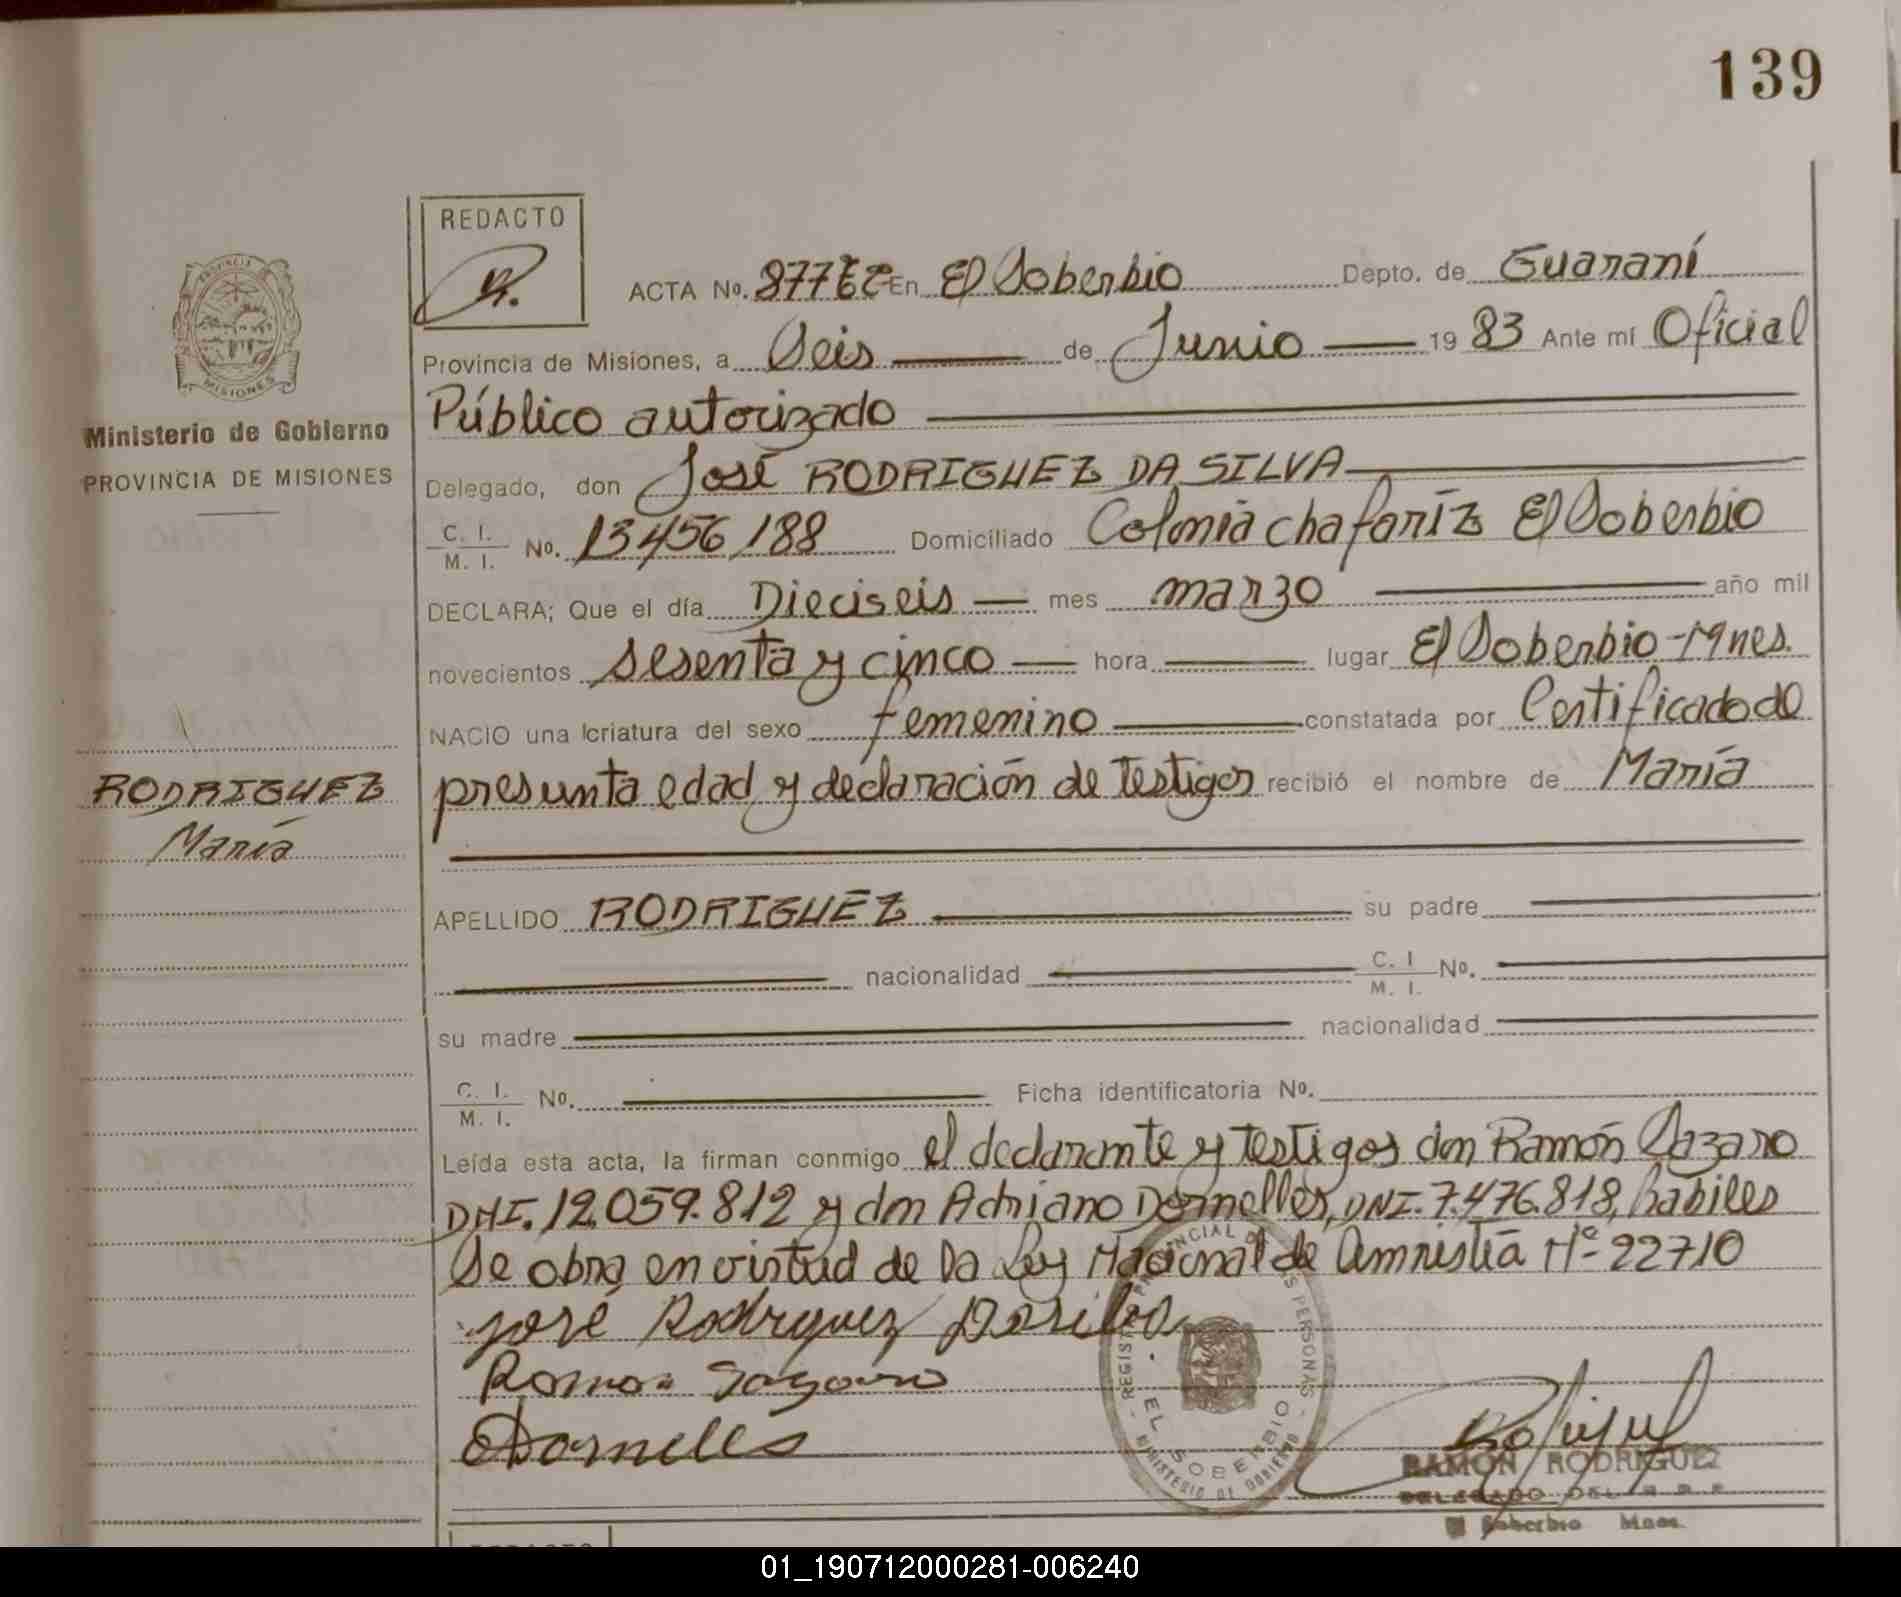 139
REDACTO
ACTA No. En El Soberbio Depto. de Guaraní
Provincia de Misiones, a Seis de Junio 19 83 Ante mí Oficial
Público autorizado
Delegado, don José RODRIGUEZ DA SILVA
C. I.
M. I. No. 13456,188 Domiciliado Colonia chafaríz El Soberbio
DECLARA; Que el día Dieciseis mes marzo año mil
novecientos sesenta y cinco hora lugar El Soberbio-Mnes.
NACIO una criatura del sexo femenino constatada por Certificado de
presunta edad y declaración de testigos recibió el nombre de María
APELLIDO RODRIGUEZ su padre
nacionalidad C. I
M. I. No.
su madre nacionalidad
C. I.
M. I. No. Ficha identificatoria No.
Leída esta acta, la firman conmigo el declarante y testigos don Ramón Lazaro
DNI. 12.059.812 y don Adriano Dornelles, DNI. 7.476.818, habiles
Se obra en virtud de la Ley Nacional de Amnistía Nº 22710
José Rodryguez Dasilva
Ramon
Dornelles
PROVINCIA
MISIONES
Ministerio de Gobierno
PROVINCIA DE MISIONES
RODRIGUEZ
María
REGISTRO PROVINCIAL DE LAS PERSONAS
EL SOBERBIO
MINISTERIO DE GOBIERNO
RAMON RODRIGUEZ
DELEGADO DEL R. P. P.
El Soberbio Mnes.
REDACTO
01_190712000281-006240